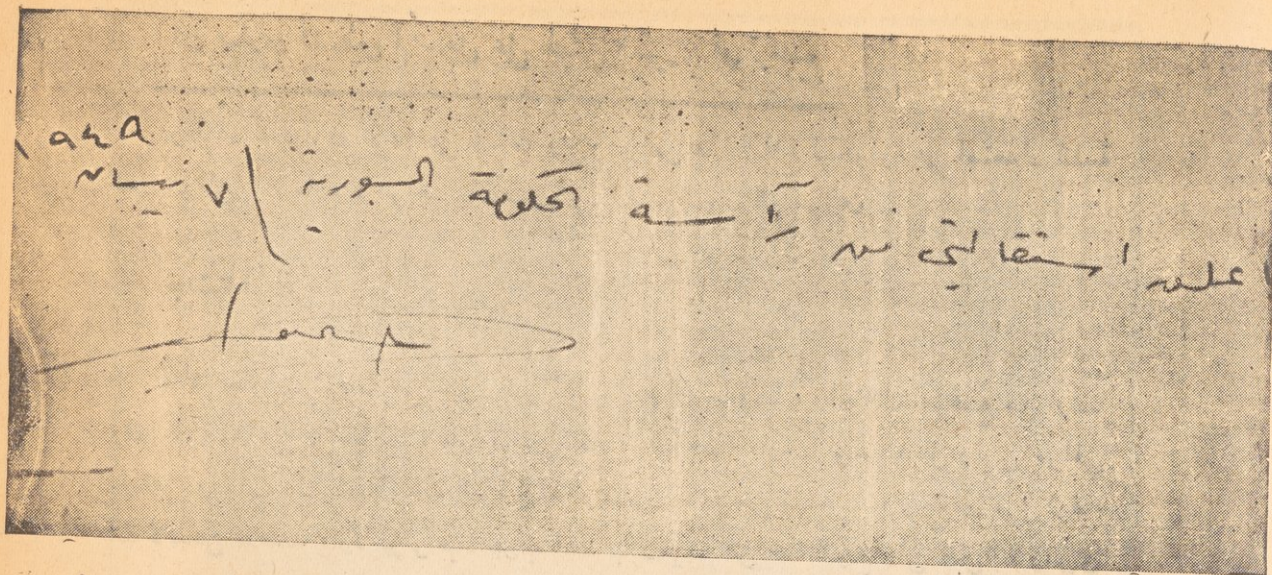 اعلن استقالتي من رآسة الحكومة السورية / ٧ نيسان ١٩٤٩